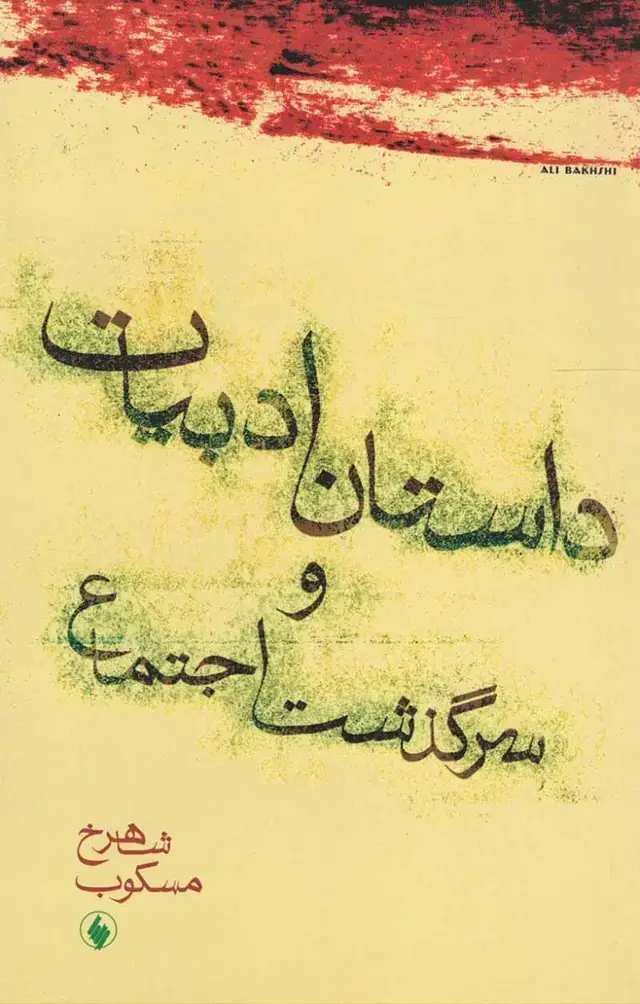 ALI BAKHSHI
داستان ادبیات
و
سرگذشت اجتماع
شاهرخ
مسکوب